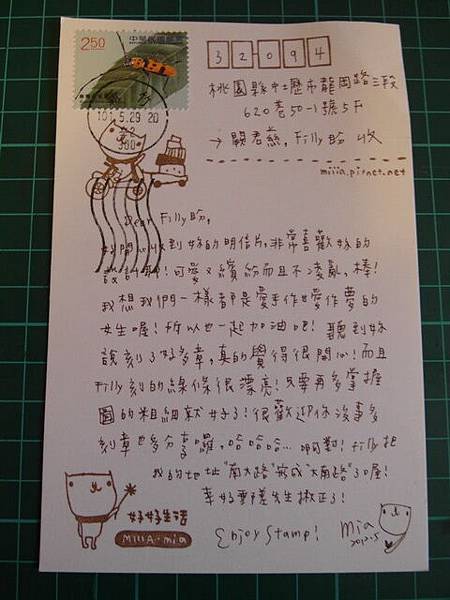 2.50
中華民國郵票
32094
桃園縣中壢市龍岡路三段
620巷50-1號5F
→ 顧君慈, Filly盼 收
101.5.29 20
miiia.pixnet.net
Dear Filly盼,
好開心收到妳的明信片,非常喜歡妳的
設計耶!可愛又繽紛而且不凌亂,棒!
我想我們一樣都是愛手作愛作夢的
女生喔!所以也一起加油吧!聽到妳
說刻了好多章,真的覺得很開心!而且
Filly刻的線條很漂亮!只要再多掌握
圖的粗細就好了!很歡迎你沒事多
刻章也多分享囉,哈哈哈... 啊對!Filly把
我的地址"南大路"寫成"大南路"了喔!
幸好郵差先生揪正了!
好好生活
MIIIA.mia
Enjoy Stamp!
Mia
2012.5